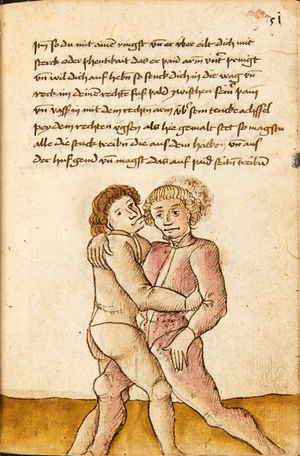 51
Itm so du mit ainem ringst vn er vber eilt dich mit
sterck oder phentikait das er paid arm vnt
vn wil dich auf hebn so senck dich in die wag vn
reck im deinen rechtn fuß pald zwischen sein pain
vn vass in mit dem rechtn arm vb sein tencke achssel
pey dem rechten vgsen als hie gemalt stet so magstu
alle die stuck treibn die auf dem hacken vn auf
der huf gend vn magst das auf paid seitn treibn